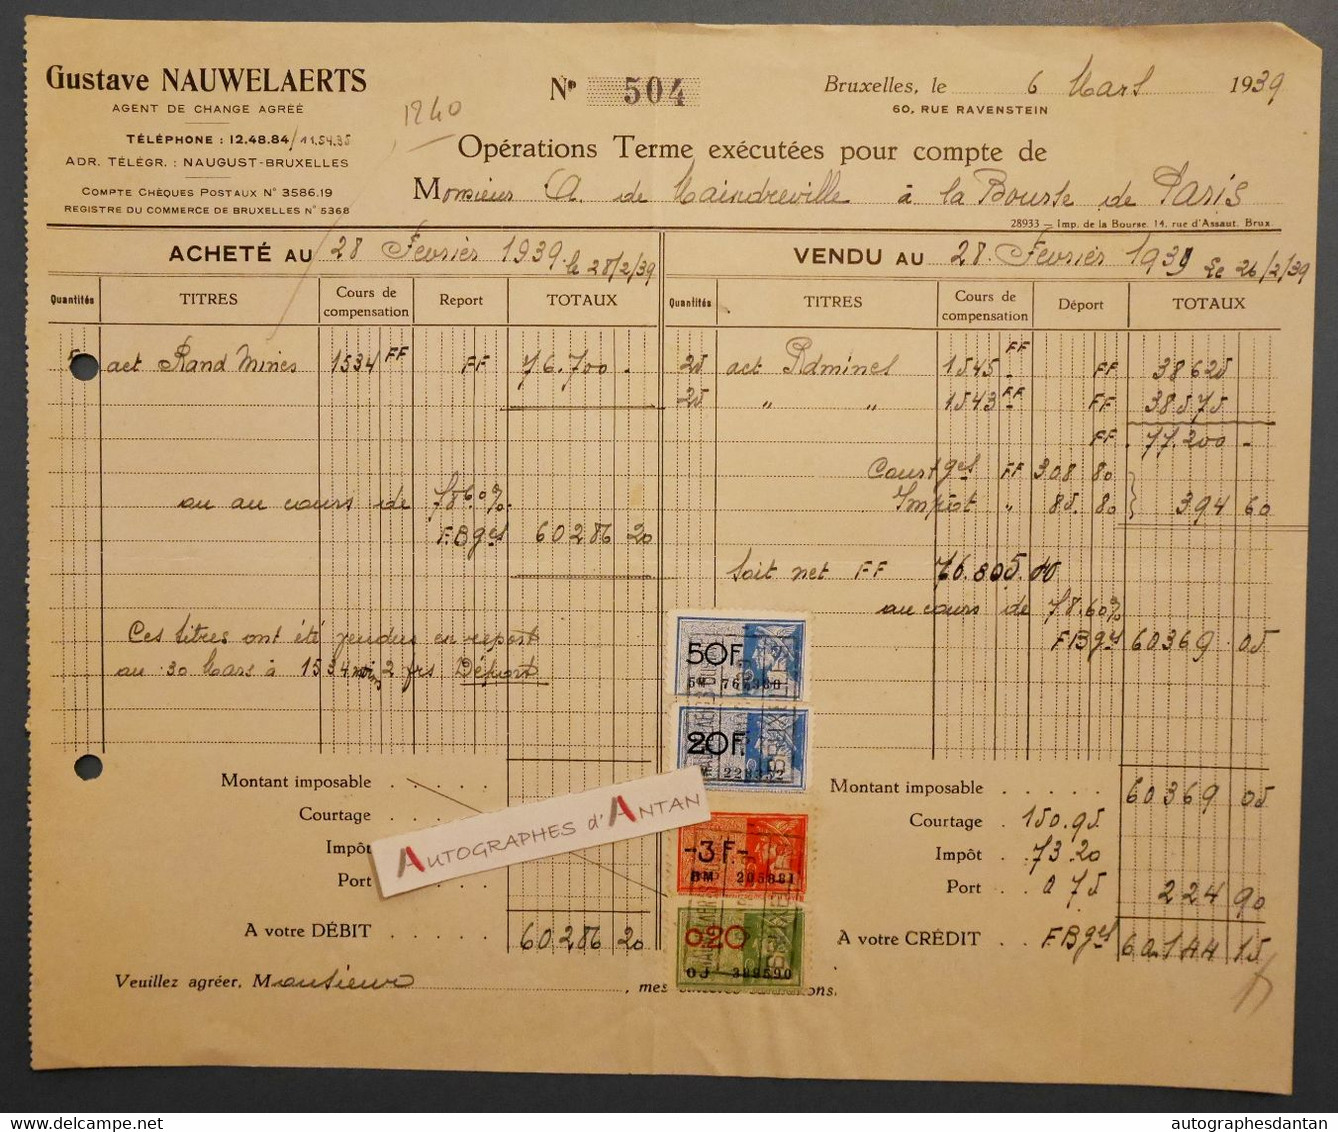 Gustave NAUWELAERTS
AGENT DE CHANGE AGRÉÉ
TÉLÉPHONE : 12.48.84 / 11.54.35
ADR. TÉLÉGR. : NAUGUST-BRUXELLES
COMPTE CHÈQUES POSTAUX N° 3586.19
REGISTRE DU COMMERCE DE BRUXELLES N° 5368
1240
N° 504
Bruxelles, le 6 Mars 1939
60, RUE RAVENSTEIN
Opérations Terme exécutées pour compte de
Monsieur A. de Maindreville à la Bourse de Paris
28933 — Imp. de la Bourse, 14, rue d'Assaut, Brux.
ACHETÉ AU 28 Février 1939. le 28/2/39
Quantités TITRES Cours de compensation Report TOTAUX
act Rand Mines 1534 FF FF 76.700 -
au cours de 78.60%
FBges 60286 20
Ces titres ont été vendus en report
au 30 Mars à 1534 moins 2 frs Déport
Montant imposable . . . . .
Courtage . . . .
Impôt
Port
A votre DÉBIT . . . . . 60286 20
VENDU AU 28 Février 1939 le 26/2/39
Quantités TITRES Cours de compensation Déport TOTAUX
25 act Rdmines 1545 FF - FF 38625
25 " " 1543 FF - FF 38575
FF 77.200 -
Court ges FF 308 80
Impôt " 85. 80 } 394 60
Soit net FF 76.805.40
au cours de 78.60%
FBges 60369.05
50F.
5M
20F.
-3F.-
BM 205881
0.20
OJ 388590
Montant imposable . . . . . 60369 05
Courtage . 150.95
Impôt . 73.20
Port . . 0 75 224 90
A votre CRÉDIT . . FBges 60.144 15
Veuillez agréer, Monsieur , mes sincères salutations.
AUTOGRAPHES d'ANTAN
autographesdantan